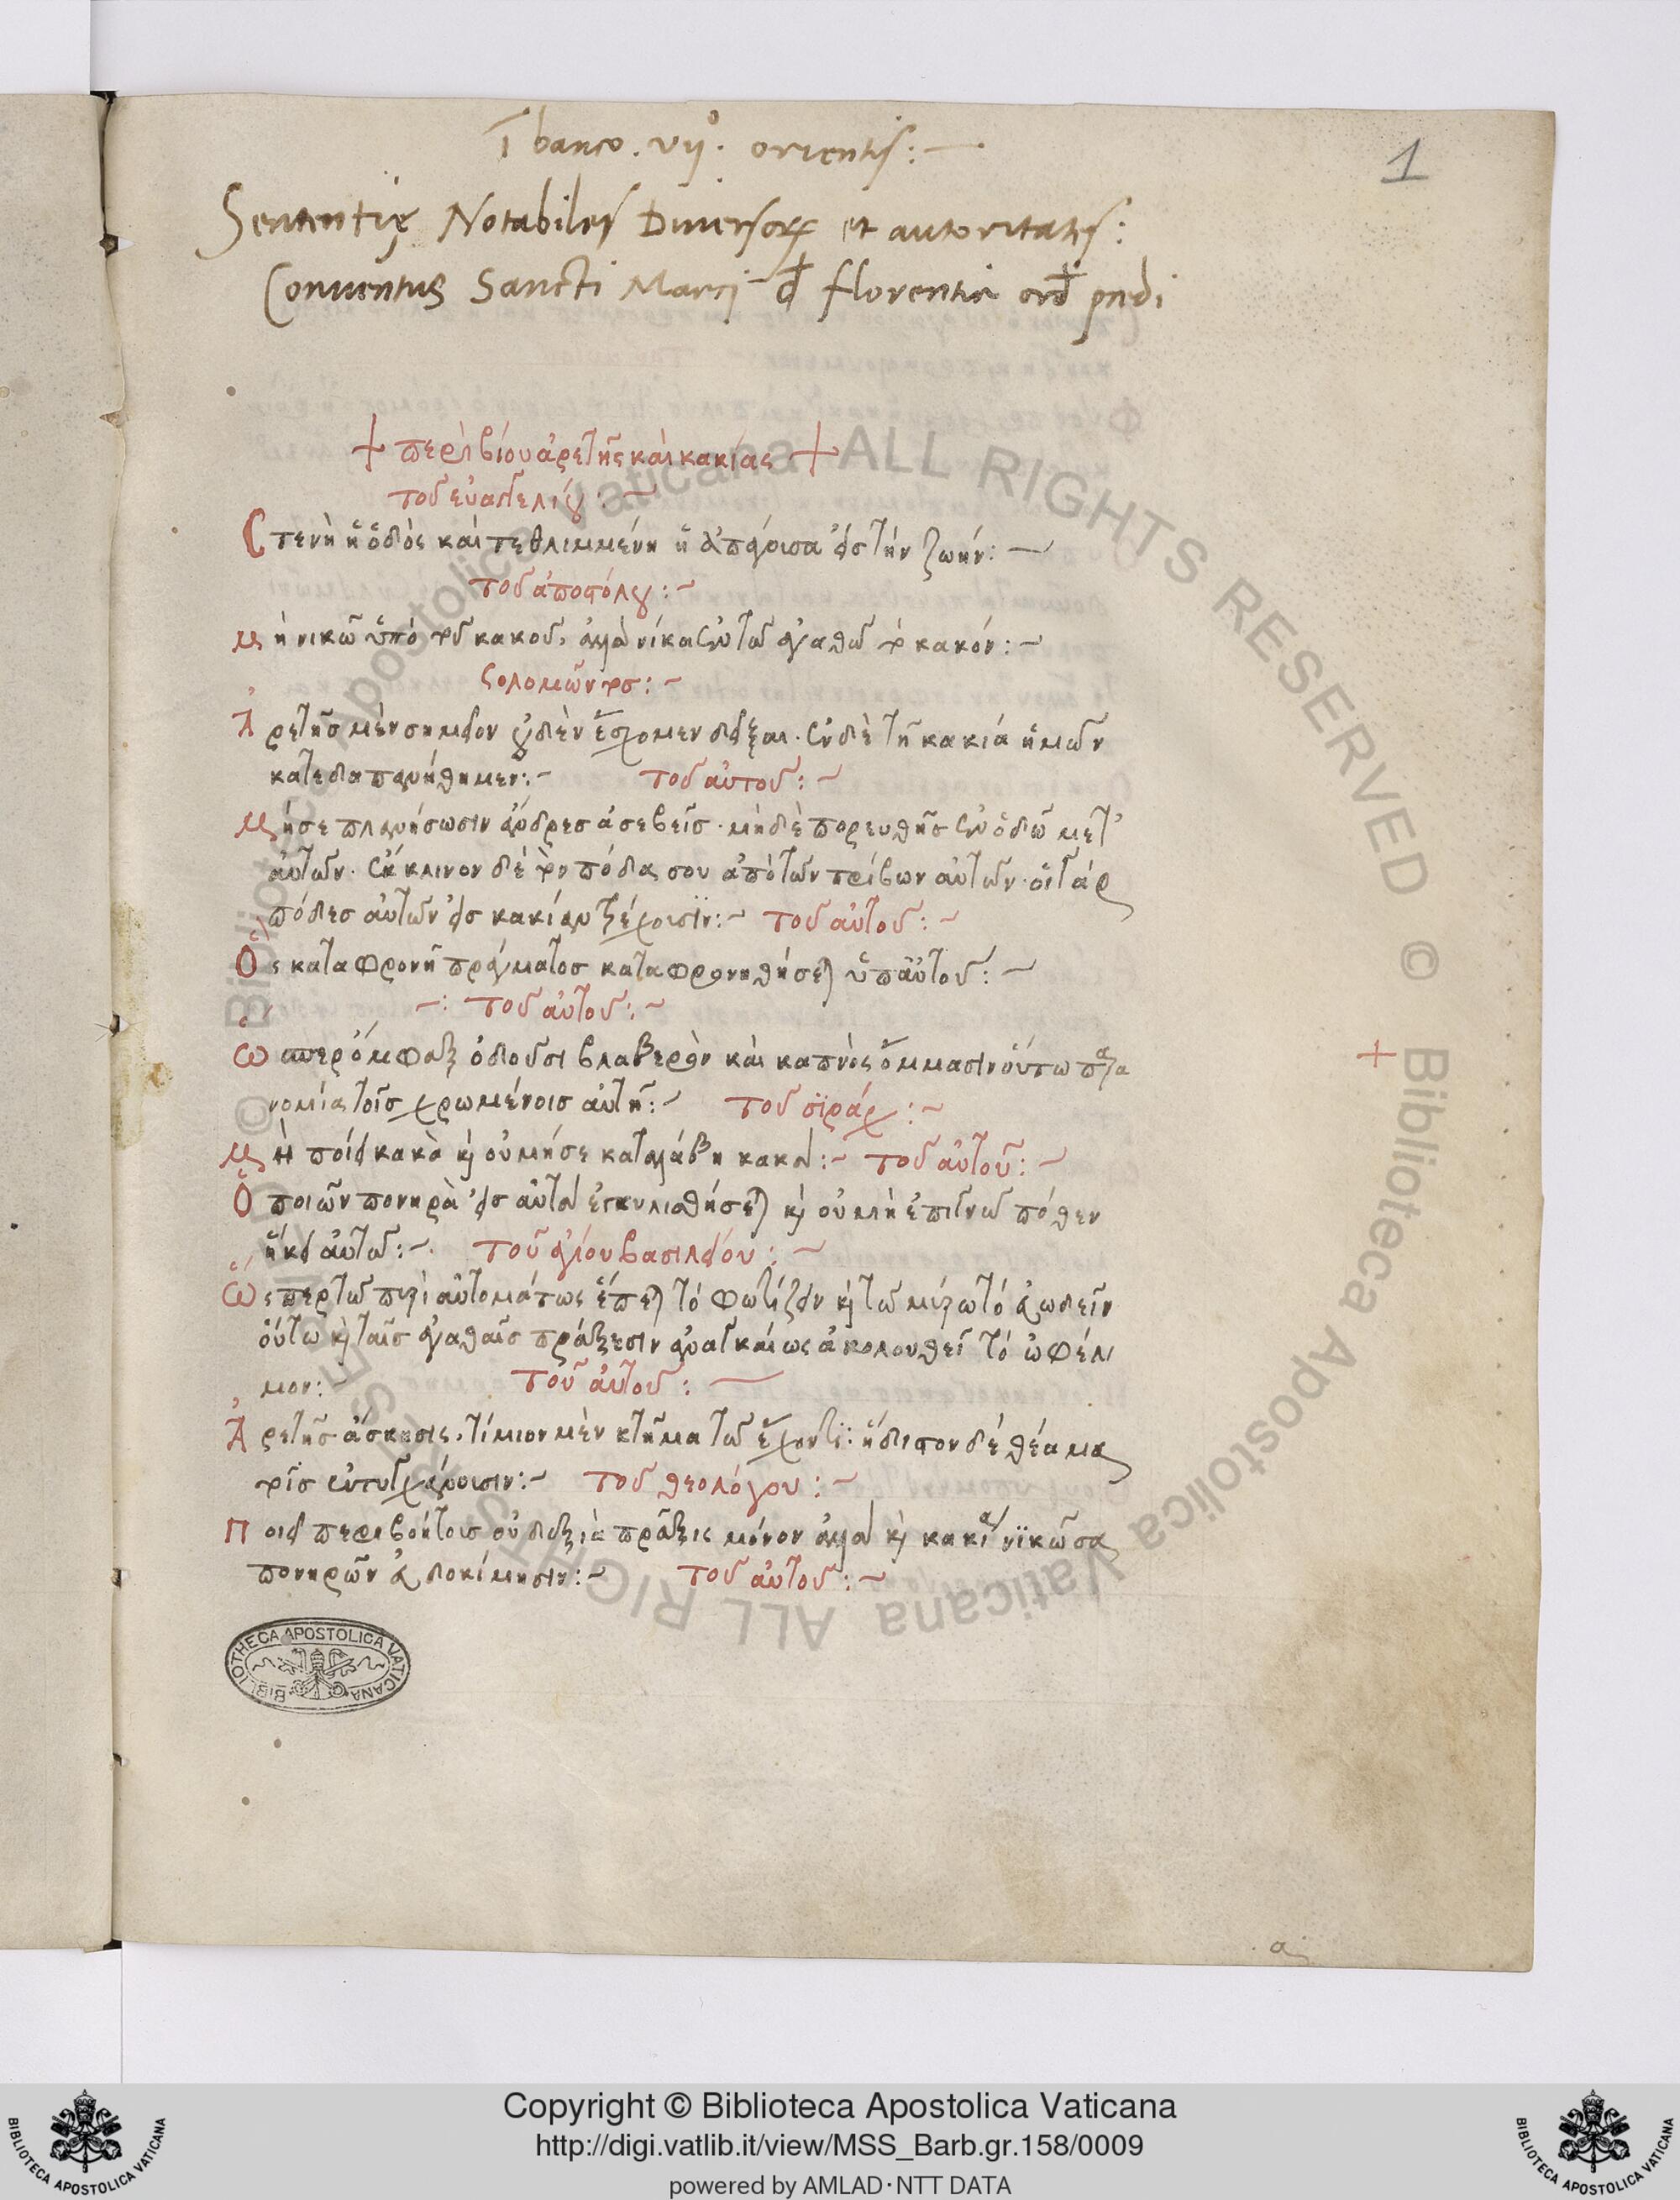 ī banco . vijº . orientis : —
1
Sententię Notabiles Diuersorꝝ et autoritates :
Conuentus Sancti Marci đ florentia ord pndi
+ περὶ βίου ἀρετῆς καὶ κακίας +
τοῦ εὐαγγελίου : ~
Στενὴ ἡ ὁδὸς καὶ τεθλιμμένη ἡ ἀπάγουσα εἰς τὴν ζωήν : —
τοῦ ἀποστόλου : ~
μὴ νικῶ ὑπὸ τοῦ κακοῦ, ἀλλὰ νίκα ἐν τῶ ἀγαθῶ τὸ κακόν : ~
Σολομῶντος : ~
Ἀρετῆς μὲν σημεῖον οὐδὲν ἔσχομεν δεῖξαι . ἐν δὲ τῆ κακία ἡμῶν
κατεδαπανήθημεν : ~ τοῦ αὐτοῦ : ~
μή σε πλανήσωσιν ἄνδρες ἀσεβεῖς . μὴ δὲ πορευθῆς ἐν ὁδῶ μετ'
αὐτῶν . ἔκκλινον δὲ τὸν πόδα σου ἀπὸ τῶν τρίβων αὐτῶν . οἱ γὰρ
πόδες αὐτῶν εἰς κακίαν τρέχουσιν : ~ τοῦ αὐτοῦ : ~
Ὃς καταφρονῆ πράγματος καταφρονηθήσεται ὑπ' αὐτοῦ : —
~ : τοῦ αὐτοῦ : ~
Ὥσπερ ὄμφαξ ὀδοῦσι βλαβερὸν καὶ καπνὸς ὄμμασιν οὕτω παρα
νομία τοῖς χρωμένοις αὐτῆ : ~ τοῦ σϊράχ : ~
+
μὴ ποίει κακὰ κ οὐ μή σε καταλάβη κακά : ~ τοῦ αὐτοῦ : ~
Ὁ ποιῶν πονηρὰ εἰς αὐτὰ ἐγκυλισθήσεται κ οὐ μὴ ἐπιγνῶ πόθεν
ἥκει αὐτῶ : ~ τοῦ ἁγίου βασιλείου : ~
Ὥσπερ τῶ πυρὶ αὐτομάτως ἕπεται τὸ φωτίζειν κ τῶ μύρω τὸ εὐωδεῖν
οὕτω κ ταῖς ἀγαθαῖς πράξεσιν ἀναγκαίως ἀκολουθεῖ τὸ ὠφέλι
μον : ~ τοῦ αὐτοῦ : —
Ἀρετῆς ἄσκησις, τίμιον μὲν κτῆμα τῶ ἔχοντϊ : ἥδιστον δὲ θέαμα
τοῖς ἐντυγχάνουσιν : ~ τοῦ θεολόγου : ~
Ποιεῖ περιβοήτους οὐ δεξιὰ πρᾶξις μόνον ἀλλὰ κ κακία νϊκῶσα
πονηρῶν εὐδοκίμησιν : ~ τοῦ αὐτοῦ : ~
BIBLIOTHECA APOSTOLICA VATICANA
a
© Biblioteca Apostolica Vaticana ALL RIGHTS RESERVED © Biblioteca Apostolica Vaticana ALL RIGHTS RESERVED
Copyright © Biblioteca Apostolica Vaticana
http://digi.vatlib.it/view/MSS_Barb.gr.158/0009
powered by AMLAD·NTT DATA
BIBLIOTECA APOSTOLICA VATICANA
BIBLIOTECA APOSTOLICA VATICANA